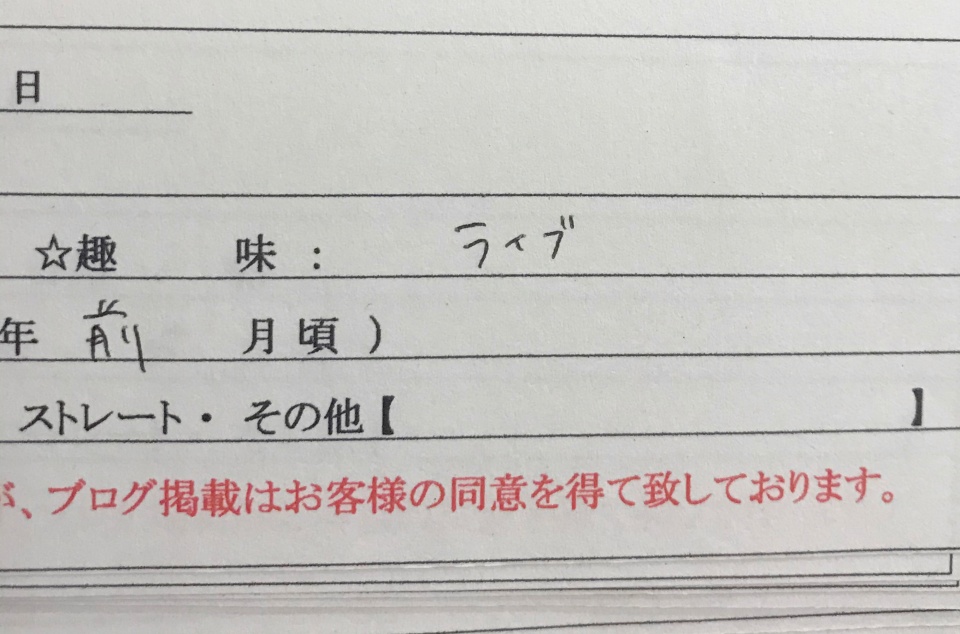 日
☆趣 味 : ライブ
年 前 月頃 )
ストレート・ その他【 】
が、ブログ掲載はお客様の同意を得て致しております。